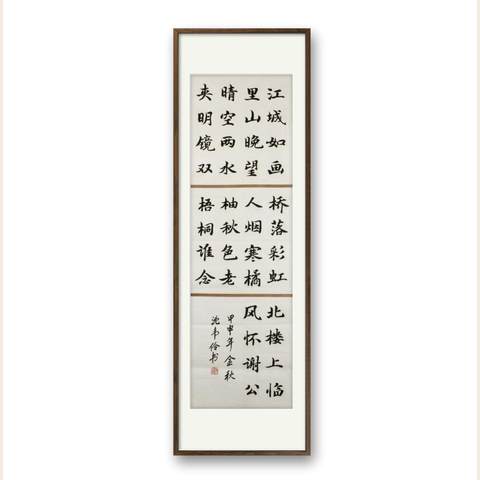 江城如画
里山晚望
晴空两水
夹明镜双
桥落彩虹
人烟寒橘
柚秋色老
梧桐谁念
北楼上临
风怀谢公
甲申年金秋